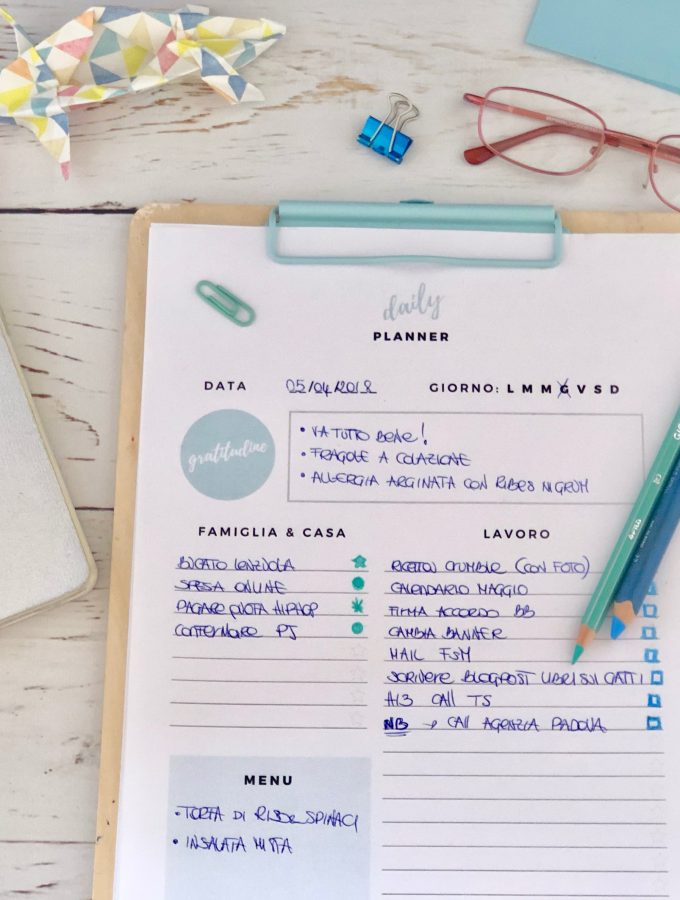 daily
PLANNER
DATA 05/04/2018 GIORNO: L M M G V S D
gratitudine
• VA TUTTO BENE!
• FRAGOLE A COLAZIONE
• ALLERGIA ARGINATA CON RIBES NIGRUM
FAMIGLIA & CASA
BUCATO LENZUOLA
SPESA ONLINE
PAGARE QUOTA HIPHOP
CONFERMARE PJ
LAVORO
RICETTA CRUMBLE (CON FOTO)
CALENDARIO MAGGIO
FIRMA ACCORDO BB
CAMBIA BANNER
MAIL FSM
SCRIVERE BLOGPOST LIBRI SUI GATTI
H13 CALL TS
NB → CALL AGENZIA PADOVA
MENU
• TORTA DI RISO E SPINACI
• INSALATA MISTA